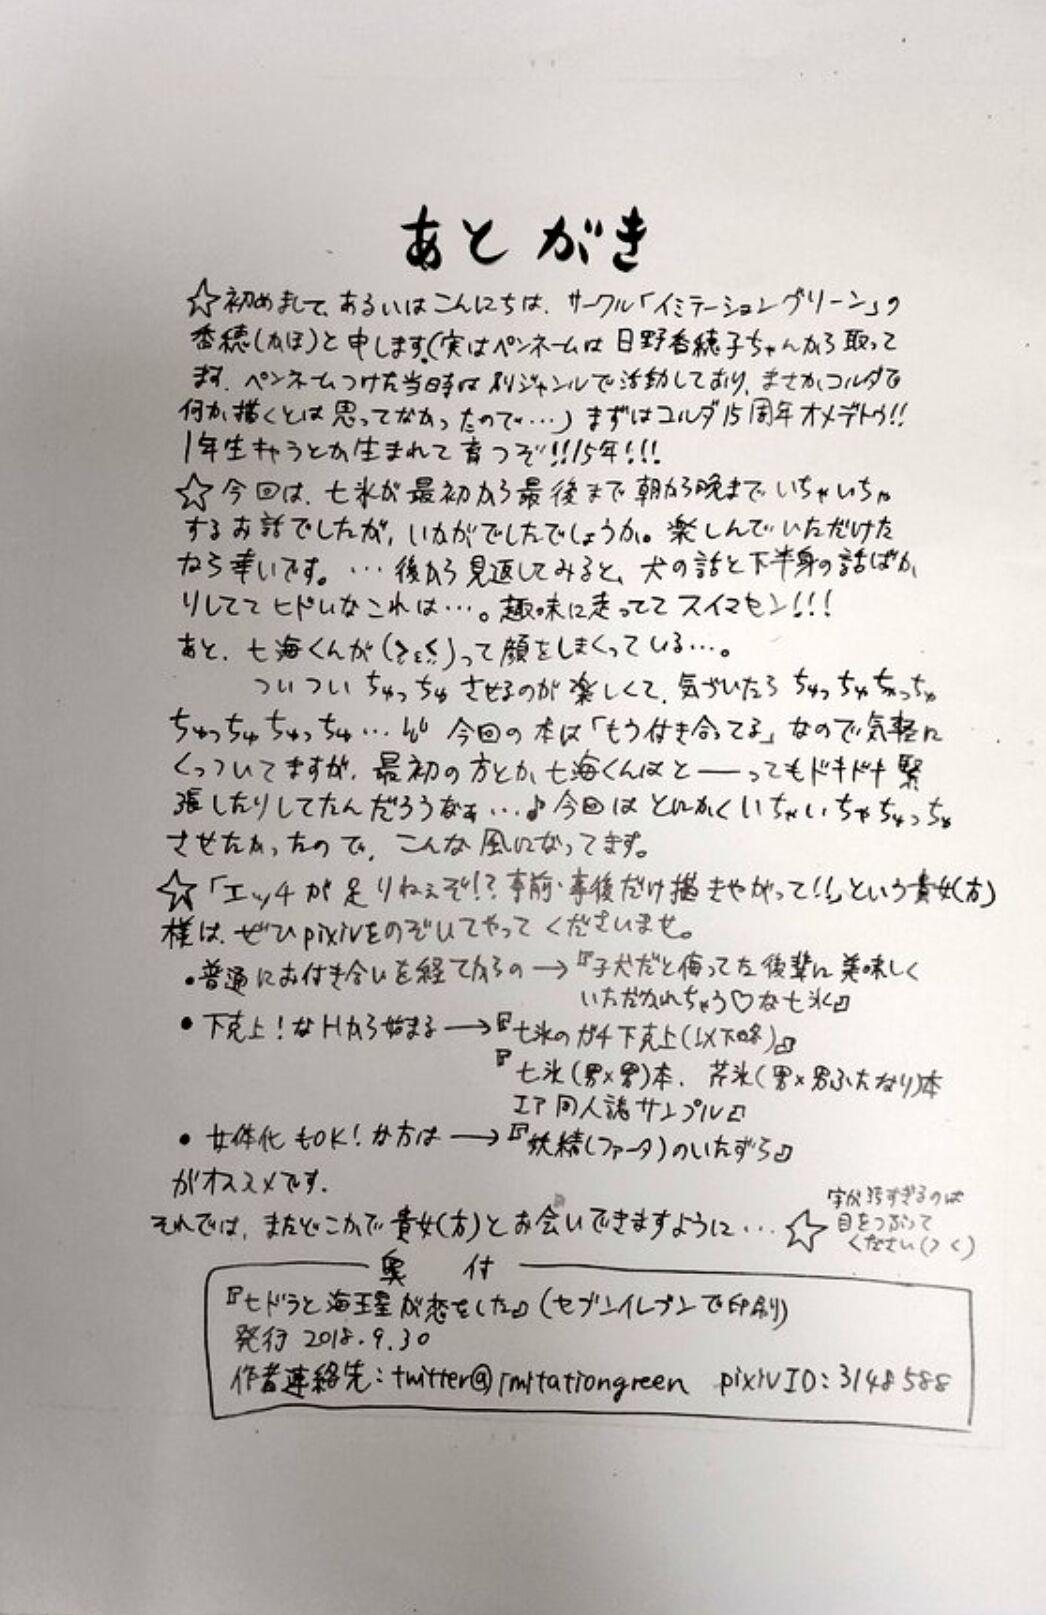 あとがき
☆初めまして、あるいはこんにちは、サークル「イミテーショングリーン」の
香穂(かほ)と申します。(実はペンネームは日野香穂子ちゃんから取って
ます。ペンネームつけた当時は別ジャンルで活動しており、まさかコルダで
何か描くとは思ってなかったので…)まずはコルダ15周年オメデトウ!!
1年生キャラとか生まれて育つぞ!!15年!!!
☆今回は、七氷が最初から最後まで朝から晩までいちゃいちゃ
するお話でしたが、いかがでしたでしょうか。楽しんでいただけた
なら幸いです。…後から見返してみると、犬の話と下半身の話ばか
りしててヒドいなこれは…。趣味に走っててスイマセン!!!
あと、七海くんが(≧ε≦)って顔をしまくっている…。
ついついちゅっちゅさせるのが楽しくて、気づいたらちゅっちゅちゅっちゅ
ちゅっちゅちゅっちゅ… 今回の本は「もう付き合ってる」なので気軽に
くっついてますが、最初の方とか七海くんはと――ってもドキドキ緊
張したりしてたんだろうなぁ…♪今回はとにかくいちゃいちゃちゅっちゅ
させたかったので、こんな風になってます。
☆「エッチが足りねぇぞ!?事前・事後だけ描きやがって!!」という貴女(方)
様は、ぜひpixivをのぞいてやってくださいませ。
•普通にお付き合いを経てからの→『子犬だと侮ってた後輩に美味しく
いただかれちゃう♡な七氷』
•下克上!なHから始まる→『七氷のガチ下克上(以下略)』
『七氷(男×男)本、芹氷(男×男ふたなり)本
エア同人誌サンプル』
•女体化もOK!な方は→『妖精(ファータ)のいたずら』
がオススメです。
それでは、またどこかで貴女(方)とお会いできますように…☆
字が汚すぎるのは
目をつぶって
ください(> <)
奥付
『七ドラと海王星が恋をした』(セブンイレブンで印刷)
発行 2018.9.30
作者連絡先:twitter@imitationgreen pixivID:3148588